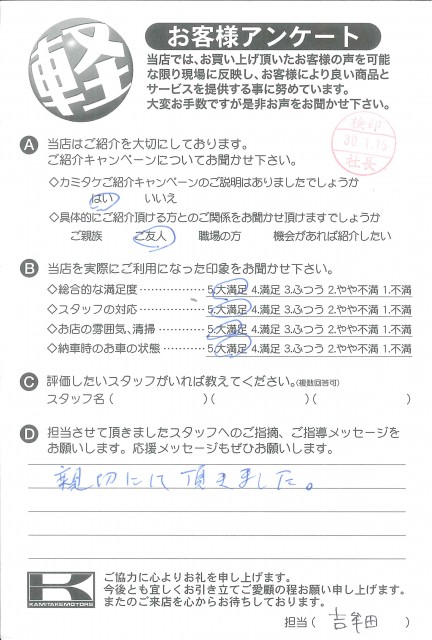 軽
お客様アンケート
当店では、お買い上げ頂いたお客様の声を可能
な限り現場に反映し、お客様により良い商品と
サービスを提供する事に努めています。
大変お手数ですが是非お声をお聞かせ下さい。
検印
30.1.15
社長
A 当店はご紹介を大切にしております。
ご紹介キャンペーンについてお聞かせ下さい。
◇カミタケご紹介キャンペーンのご説明はありましたでしょうか
はい いいえ
◇具体的にご紹介頂ける方とのご関係をお聞かせ頂けますでしょうか
ご親族 ご友人 職場の方 機会があれば紹介したい
B 当店を実際にご利用になった印象をお聞かせ下さい。
◇総合的な満足度 ‥‥‥‥‥‥ 5.大満足 4.満足 3.ふつう 2.やや不満 1.不満
◇スタッフの対応 ‥‥‥‥‥‥ 5.大満足 4.満足 3.ふつう 2.やや不満 1.不満
◇お店の雰囲気、清掃 ‥‥‥‥ 5.大満足 4.満足 3.ふつう 2.やや不満 1.不満
◇納車時のお車の状態 ‥‥‥‥ 5.大満足 4.満足 3.ふつう 2.やや不満 1.不満
C 評価したいスタッフがいれば教えてください。(複数回答可)
スタッフ名 ( )( )( )
D 担当させて頂きましたスタッフへのご指摘、ご指導メッセージを
お願いします。応援メッセージもぜひお願いします。
親切にして頂きました。
K
KAMITAKE MOTORS
ご協力に心よりお礼を申し上げます。
今後とも宜しくお引き立てご愛顧の程お願い申し上げます。
またのご来店を心からお待ちしております。
担当 ( 吉牟田 )